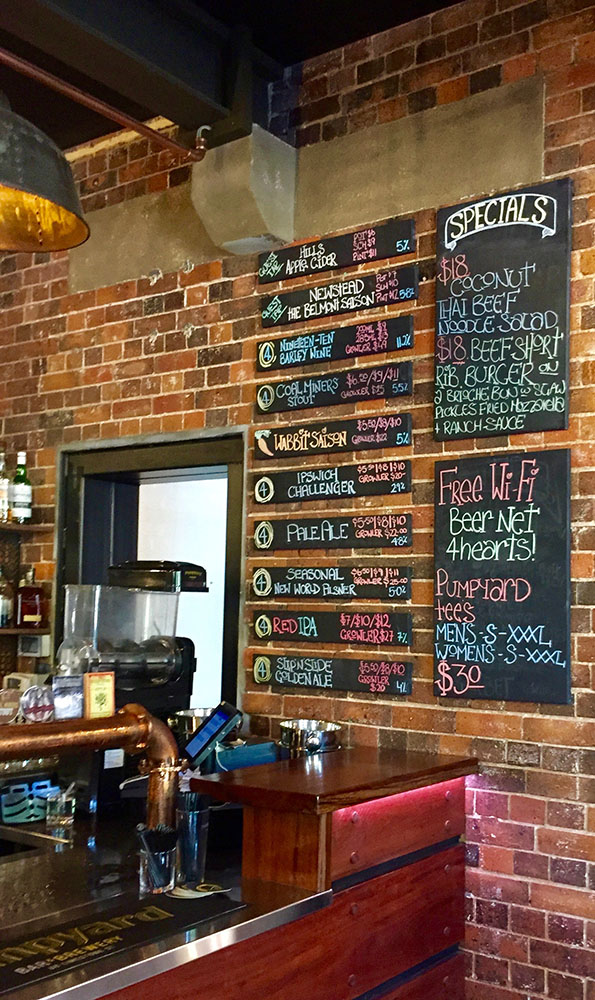 HILLS
APPLE CIDER
POT $6
SCH $9
PINT $11
5%
NEWSTEAD
THE BELMONT SAISON
POT $7
SCH $10
PINT $12
4
NINETEEN-TEN
BARLEY WINE
GROWLER
11.2%
4
COAL MINERS
STOUT
$6.50/$9/$11
GROWLER
5.5%
WABBIT SAISON
$5.50/$8/$10
GROWLER $22
5%
4
IPSWICH
CHALLENGER
$5.50/$8/$10
GROWLER $20
2.9%
4
PALE ALE
$5.50/$8/$10
GROWLER $22.00
4.8%
4
SEASONAL
NEW WORLD PILSNER
$6.50/$9/$11
GROWLER $25.00
5.0%
4
RED IPA
$7/$10/$12
GROWLER $27
7%
4
SLIP N SLIDE
GOLDEN ALE
$5.50/$8/$10
GROWLER
$20
4%
SPECIALS
$18
COCONUT
THAI BEEF
NOODLE SALAD
$18 BEEF SHORT
RIB BURGER ON
A BRIOCHE BUN W SLAW
PICKLES FRIED MOZZARELLA
+ RANCH SAUCE
FREE Wi-Fi
BEER NET
4hearts!
PUMPYARD
TEES
MENS -S-XXXL
WOMENS -S-XXXL
$30
mpYard
BAR & BREWERY